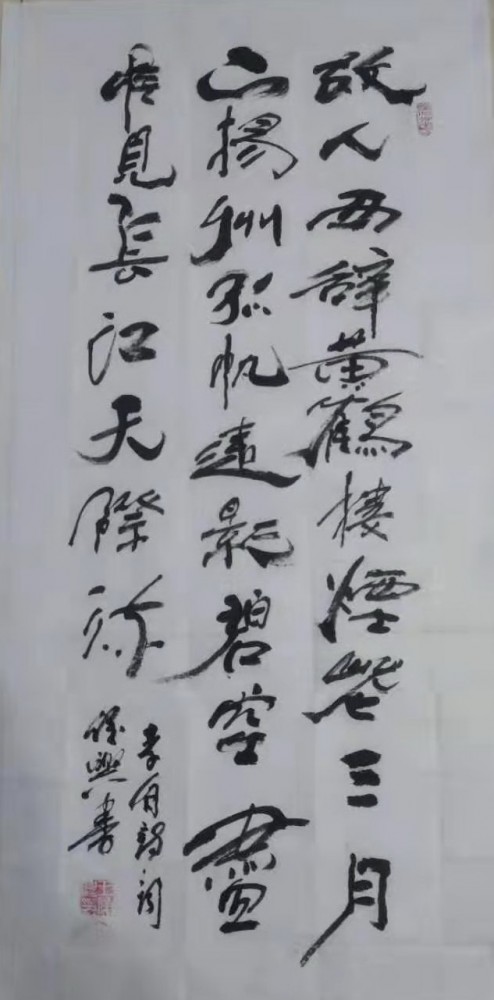 故人西辞黃鶴樓煙花三月
下揚州孤帆遠影碧空盡
惟見長江天際流
李白詩詞
興書